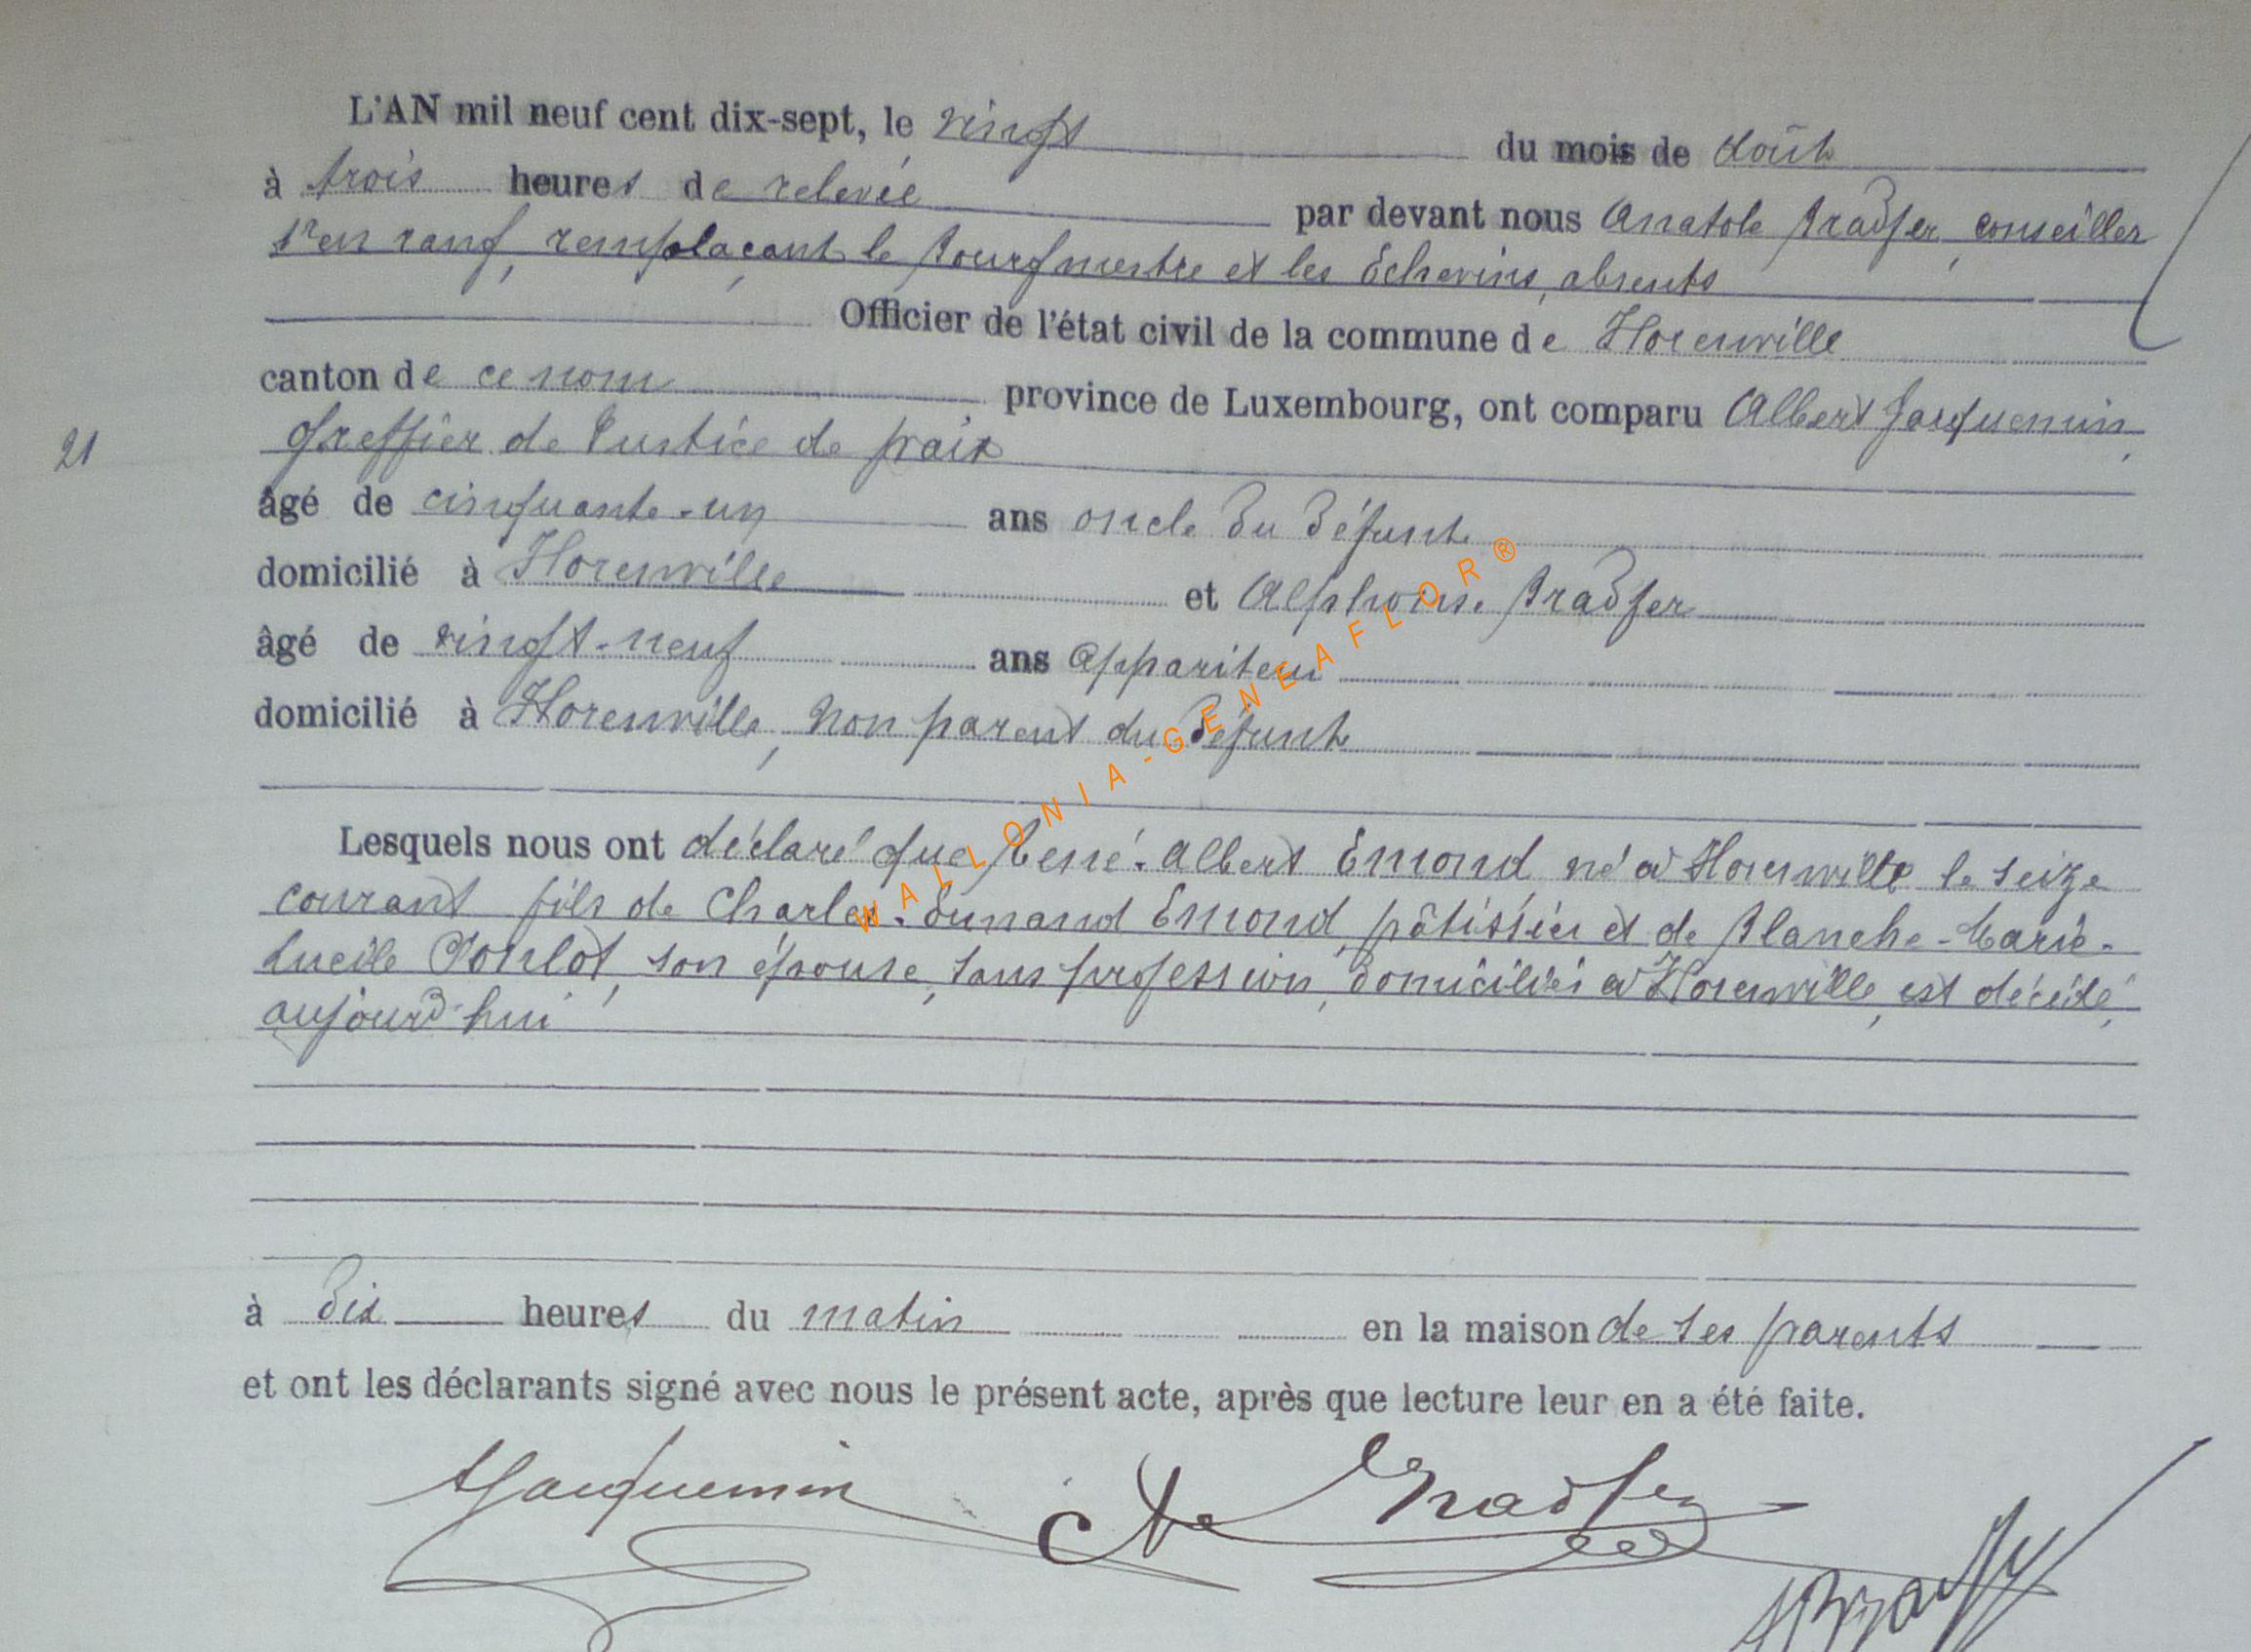 L'AN mil neuf cent dix-sept, le vingt du mois de août
à trois heures de relevée par devant nous Anatole Bradfer, conseiller
1er en rang, remplaçant le Bourgmestre et les Echevins, absents
Officier de l'état civil de la commune de Florenville
canton de ce nom province de Luxembourg, ont comparu Albert Jacquemin,
greffier de Justice de paix
21
âgé de cinquante-un ans oncle du défunt
domicilié à Florenville et Alphonse Bradfer
âgé de vingt-neuf ans appariteur
domicilié à Florenville, non parent du défunt
Lesquels nous ont déclaré que René-Albert Emond né à Florenville le seize
courant fils de Charles- Emond, pâtissier et de Blanche-Marie-
Lucile son épouse, sans profession, domiciliés à Florenville, est décédé,
aujourd'hui
à dix heures du matin en la maison de ses parents
et ont les déclarants signé avec nous le présent acte, après que lecture leur en a été faite.
AJacquemin Bradfer
ABradfer
WALLONIA-GENEAFLOR®